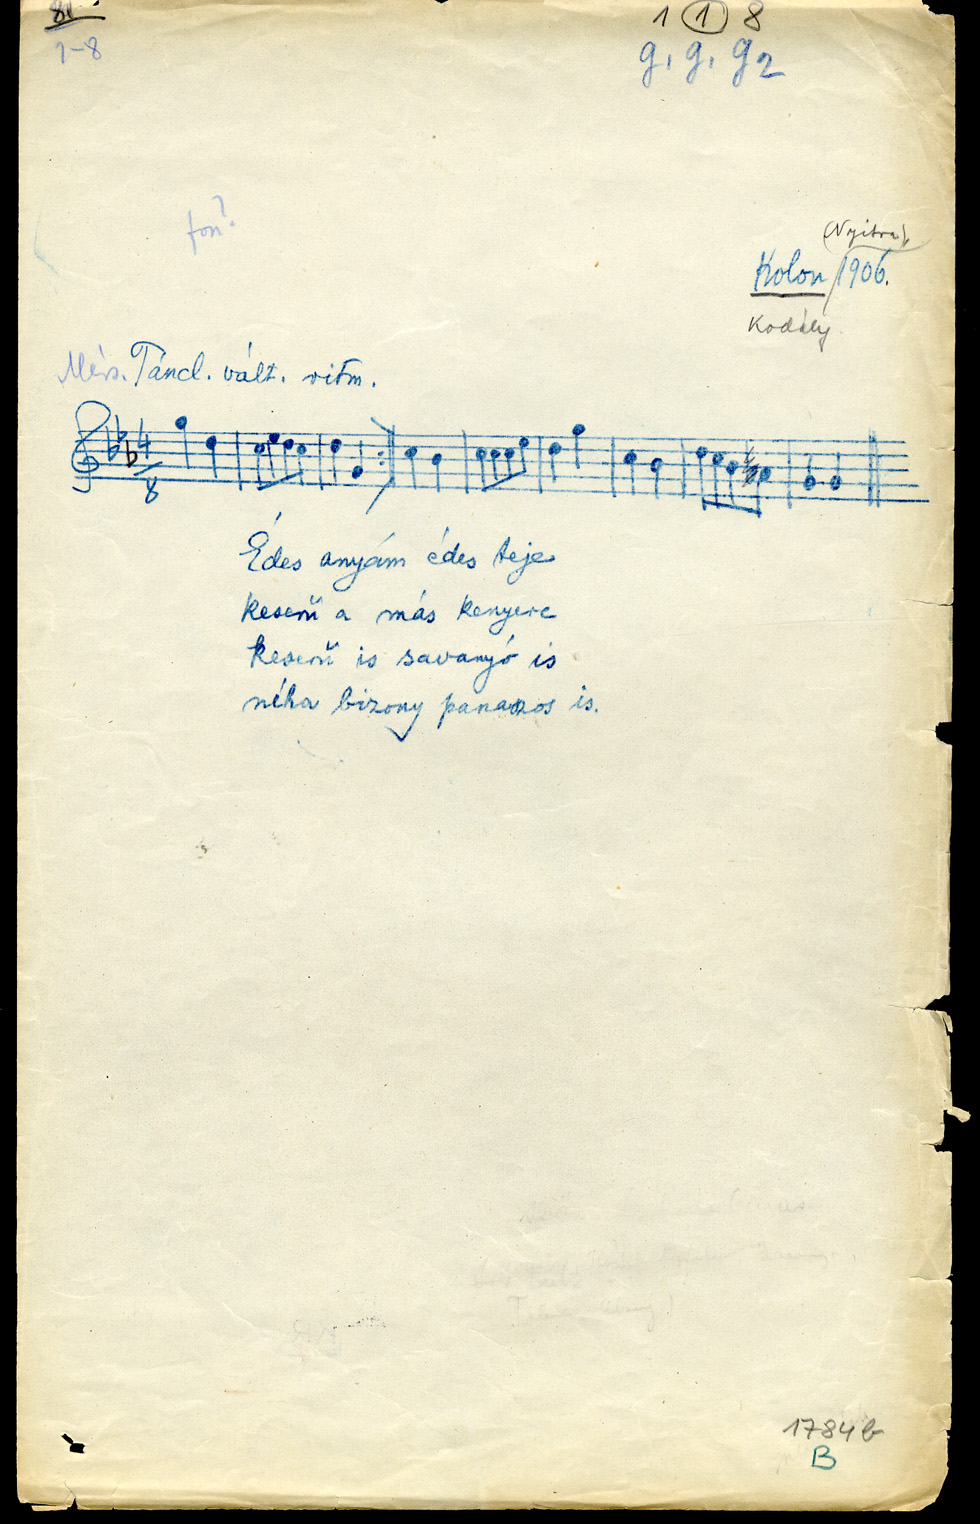 81
7-8
1 1 8
g. g. g2
fon?
(Nyitra),
Kolon /1906.
Kodály.
Mérs. Táncl. vált. ritm.
4
8
Édes anyám édes teje
keserű a más kenyere
keserű is savanyó is
néha bizony panaszos is.
1784b
B